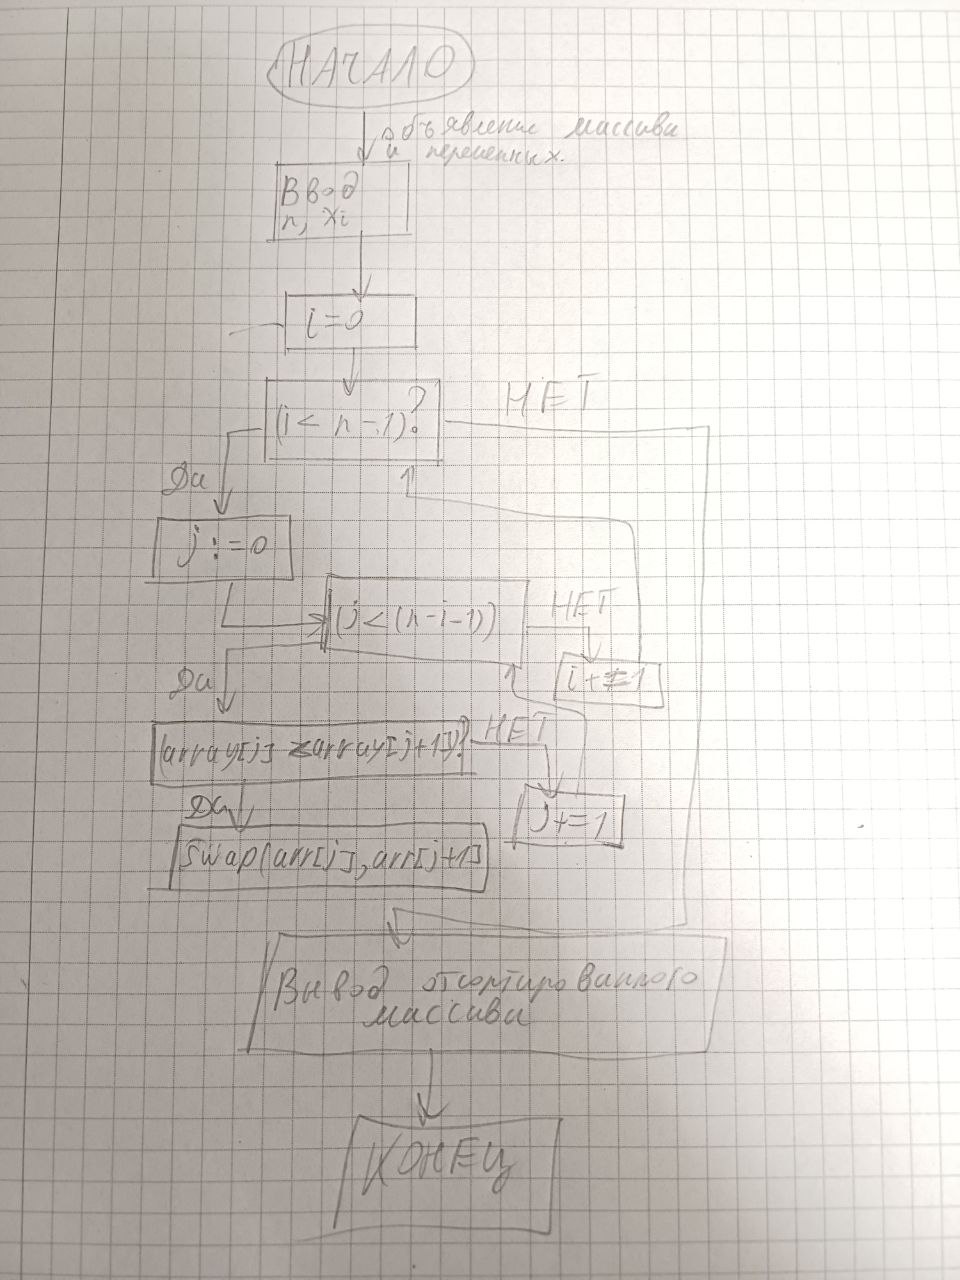 НАЧАЛО
Объявление массива
и переменных.
Ввод
n, xi
i=0
(i < n-1)?
НЕТ
Да
j:=0
(j<(n-i-1))
НЕТ
i+=1
Да
(array[j] <array[j+1])?
НЕТ
j+=1
Да
Swap(arr[j], arr[j+1]
Вывод отсортированного
массива
КОНЕЦ